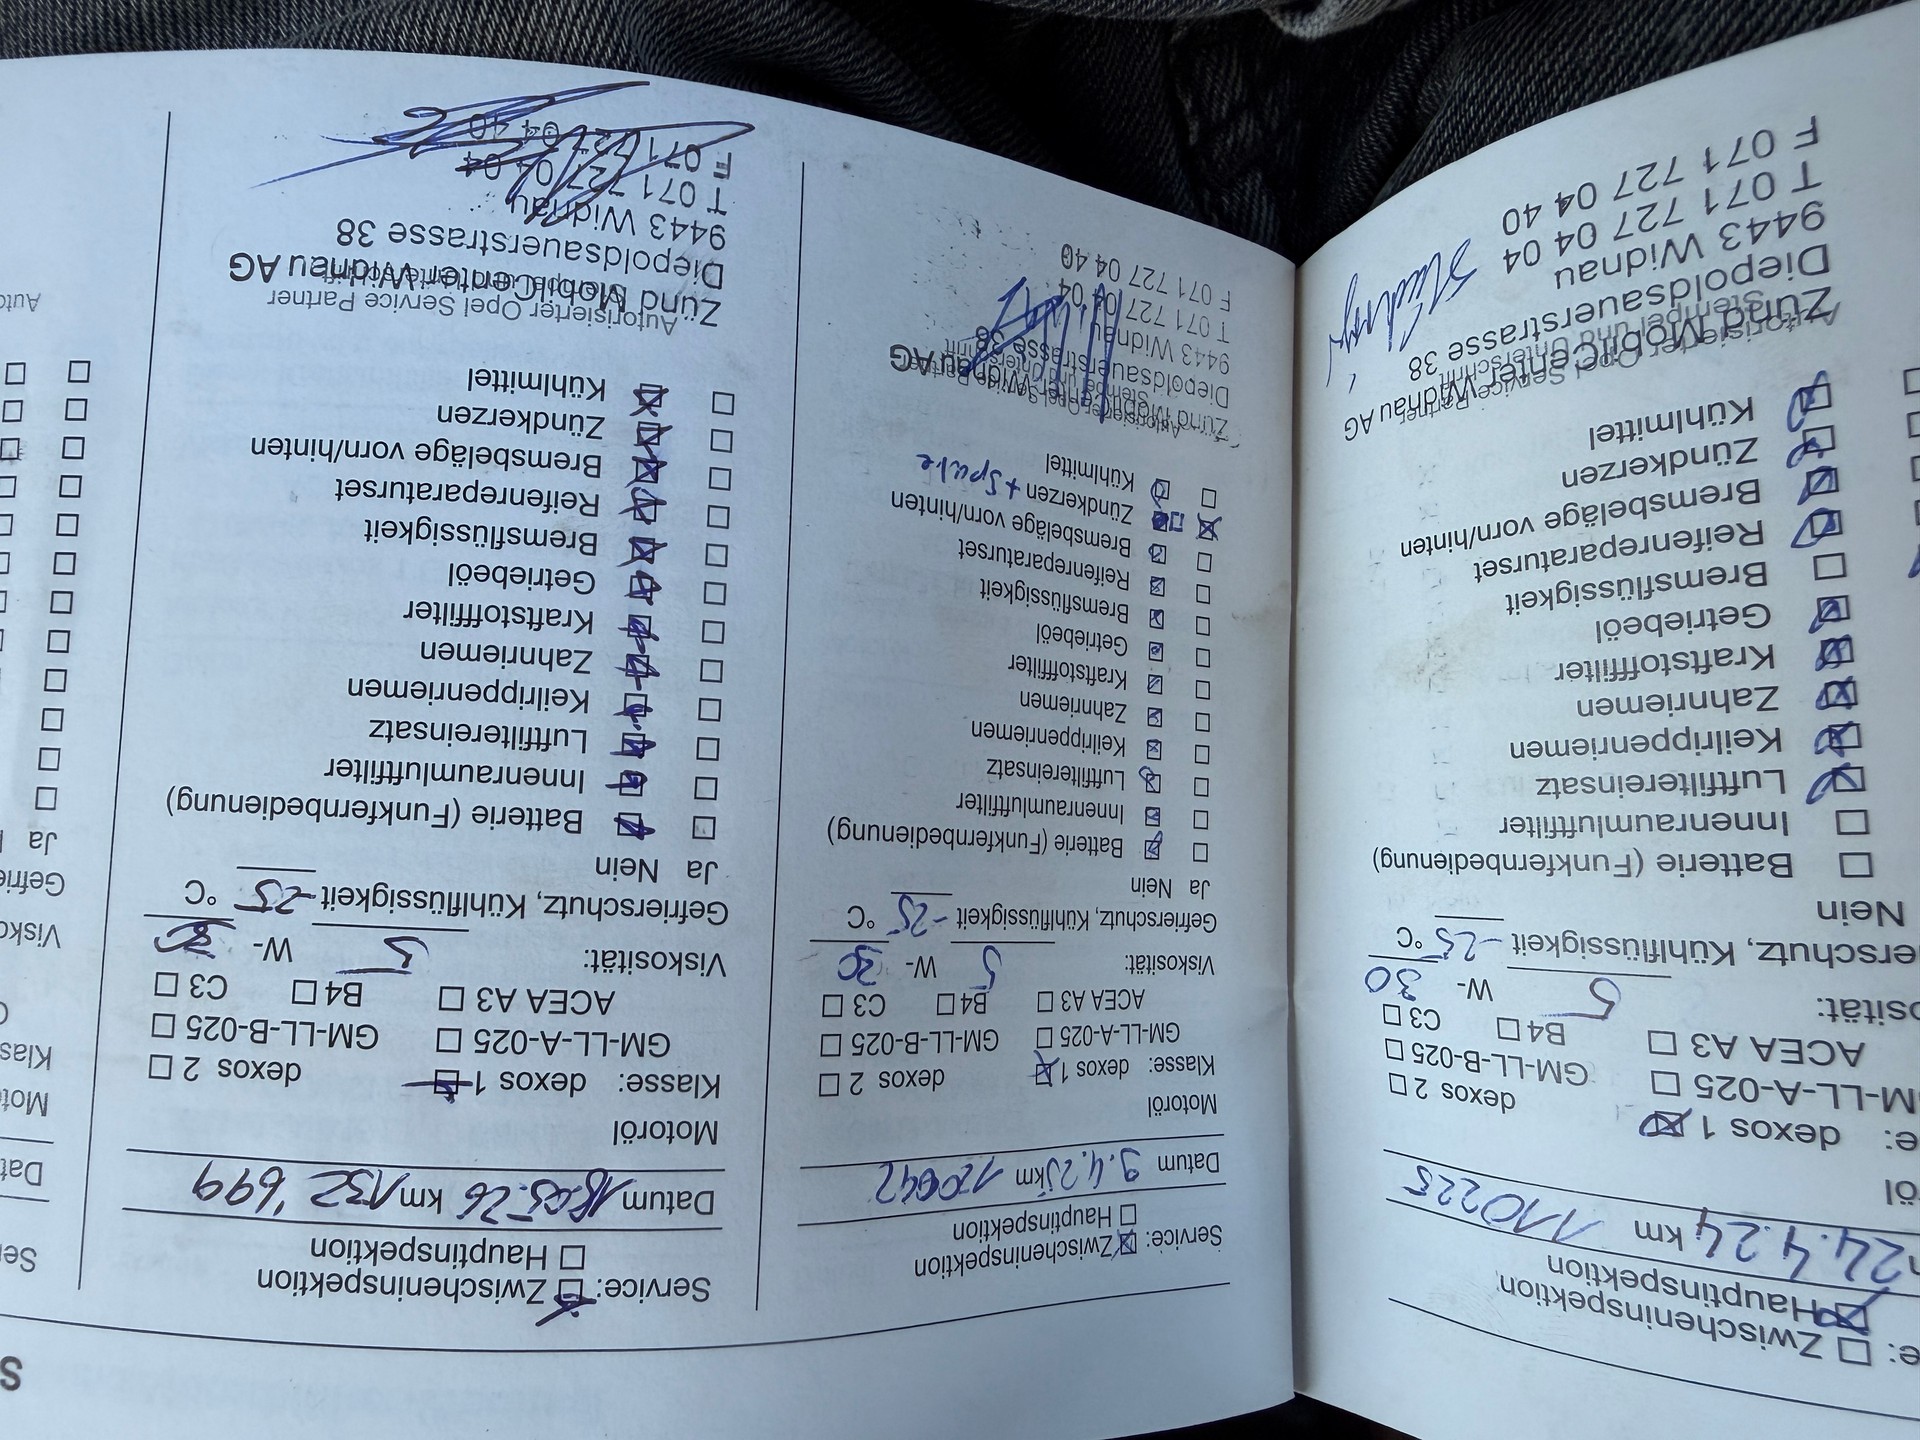 Zwischeninspektion
Hauptinspektion
24.4.24 km 110225
dexos 1 dexos 2
GM-LL-A-025 GM-LL-B-025
ACEA A3 B4 C3
5 W- 30
Kühlflüssigkeit -25 °C
Nein
Batterie (Funkfernbedienung)
Innenraumluftfilter
Luftfiltereinsatz
Keilrippenriemen
Zahnriemen
Kraftstofffilter
Getriebeöl
Bremsflüssigkeit
Reifenreparaturset
Bremsbeläge vorn/hinten
Zündkerzen
Kühlmittel
Autorisierter Opel Service Partner
Stempel und Unterschrift
Zünd MobilCenter Widnau AG
Diepoldsauerstrasse 38
9443 Widnau
T 071 727 04 04
F 071 727 04 40
Service: Zwischeninspektion
Hauptinspektion
Datum 9.4.25 km 120042
Motoröl
Klasse: dexos 1 dexos 2
GM-LL-A-025 GM-LL-B-025
ACEA A3 B4 C3
Viskosität: 5 W- 30
Gefrierschutz, Kühlflüssigkeit -25 °C
Ja Nein
Batterie (Funkfernbedienung)
Innenraumluftfilter
Luftfiltereinsatz
Keilrippenriemen
Zahnriemen
Kraftstofffilter
Getriebeöl
Bremsflüssigkeit
Reifenreparaturset
Bremsbeläge vorn/hinten
Zündkerzen + Spule
Kühlmittel
Autorisierter Opel Service Partner
Stempel und Unterschrift
Zünd MobilCenter Widnau AG
Diepoldsauerstrasse 38
9443 Widnau
T 071 727 04 04
F 071 727 04 40
Service: Zwischeninspektion
Hauptinspektion
Datum 18.05.26 km 132'699
Motoröl
Klasse: dexos 1 dexos 2
GM-LL-A-025 GM-LL-B-025
ACEA A3 B4 C3
Viskosität: 5 W- 30
Gefrierschutz, Kühlflüssigkeit -25 °C
Ja Nein
Batterie (Funkfernbedienung)
Innenraumluftfilter
Luftfiltereinsatz
Keilrippenriemen
Zahnriemen
Kraftstofffilter
Getriebeöl
Bremsflüssigkeit
Reifenreparaturset
Bremsbeläge vorn/hinten
Zündkerzen
Kühlmittel
Autorisierter Opel Service Partner
Stempel und Unterschrift
Zünd MobilCenter Widnau AG
Diepoldsauerstrasse 38
9443 Widnau
T 071 727 04 04
F 071 727 04 40
S
Ser
Dat
Moto
Klas
Visko
Gefrie
Ja
Auto